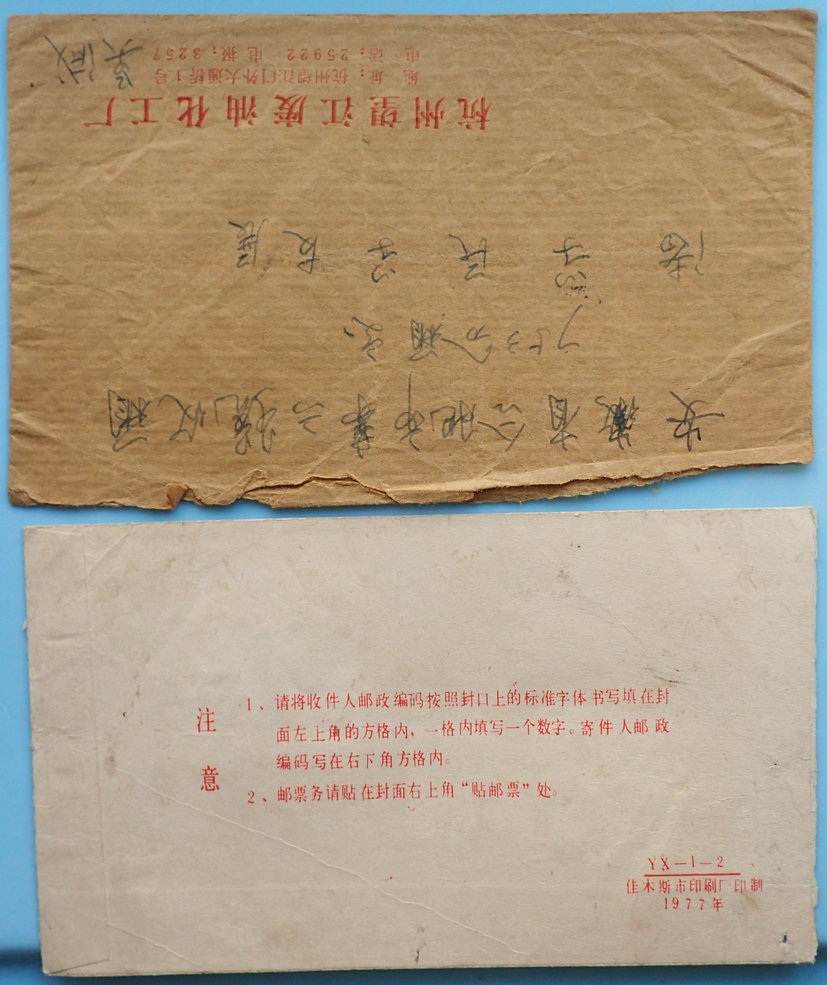 安徽省合肥市第六
杭州望江废油化工厂
地址：杭州望江门外大通桥1号
电话：25922 电报：3257
吴缄
注意
1、请将收件人邮政编码按照封口上的标准字体书写填在封
面左上角的方格内，一格内填写一个数字。寄件人邮政
编码写在右下角方格内。
2、邮票务请贴在封面右上角“贴邮票”处。
YX—1—2
佳木斯市印刷厂印制
1977年